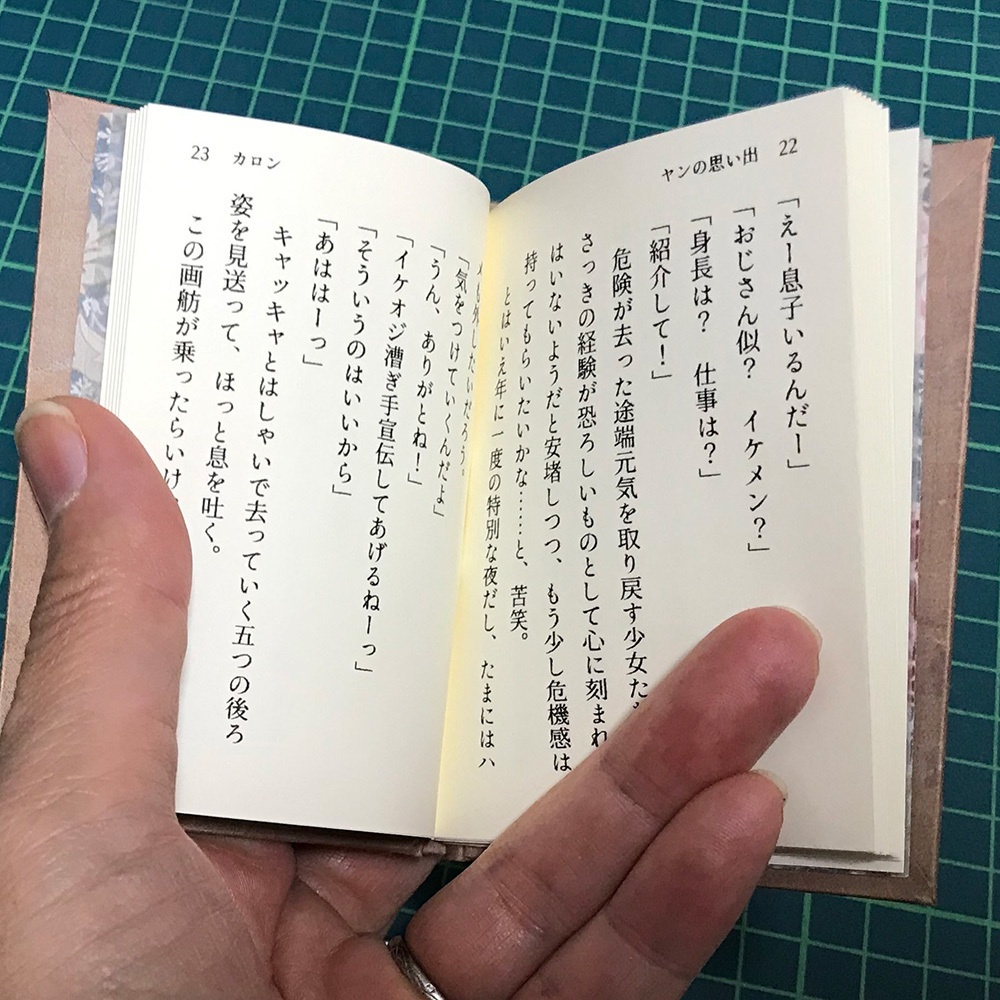 ヤンの思い出 22
「えー息子いるんだー」
「おじさん似？　イケメン？」
「身長は？　仕事は？」
「紹介して！」
危険が去った途端元気を取り戻す少女た
さっきの経験が恐ろしいものとして心に刻まれ
はいないようだと安堵しつつ、もう少し危機感は
持ってもらいたいかな……と、苦笑。
とはいえ年に一度の特別な夜だし、たまにはハ
23 カロン
も外したいだろう。
「気をつけていくんだよ」
「うん、ありがとね！」
「イケオジ漕ぎ手宣伝してあげるねーっ」
「そういうのはいいから」
「あははーっ」
キャッキャとはしゃいで去っていく五つの後ろ
姿を見送って、ほっと息を吐く。
この画舫が乗ったらいけ